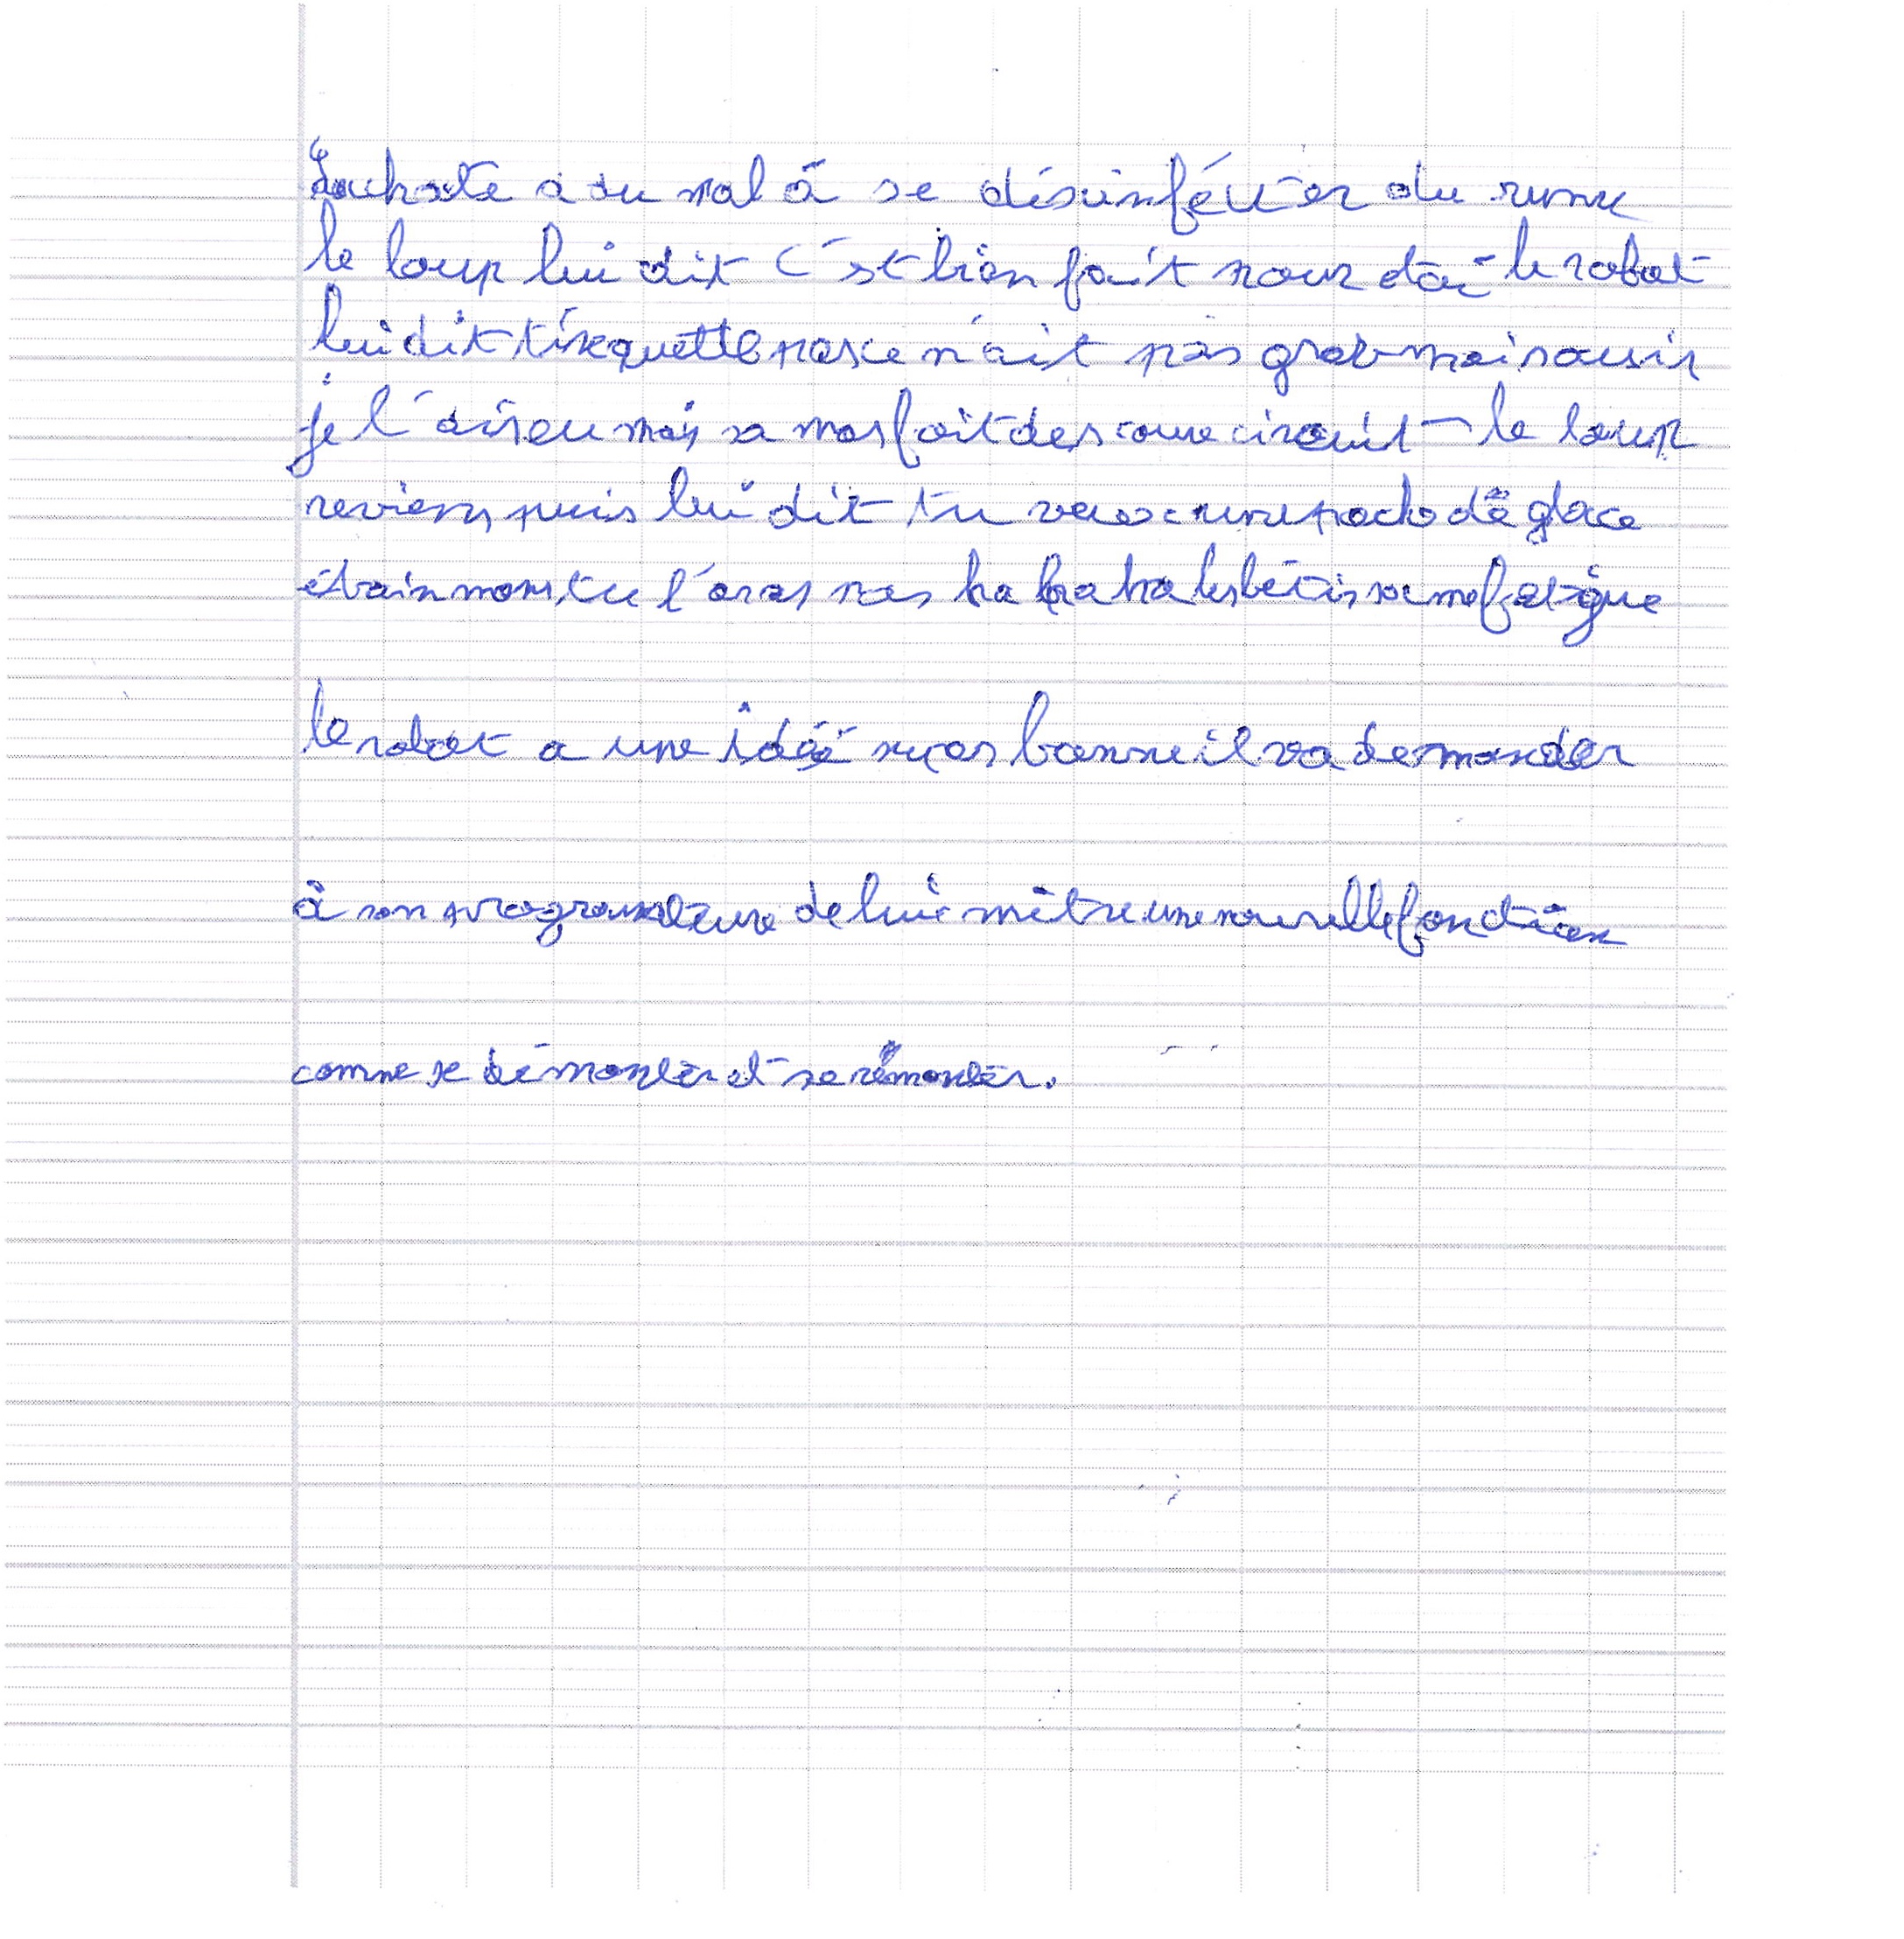 a du mal à se désinfécter du rume
le loup lui dit c'est bien fait pour toi le robot
lui dit t'inquette pas ce n'ait pas grave moi aussi
je l'ai eu mais sa mas fait des coure circuit le loup
reviens puis lui dit tu veux une poche dê glace
ê bain mons tu l'oras pas ha ha ha les bétis sa me fatigue
le robot a une idéé pas bonne il va demander
à son programateure de lui mêtre une nouvelle fonction
comme se démonter et se rémonter.